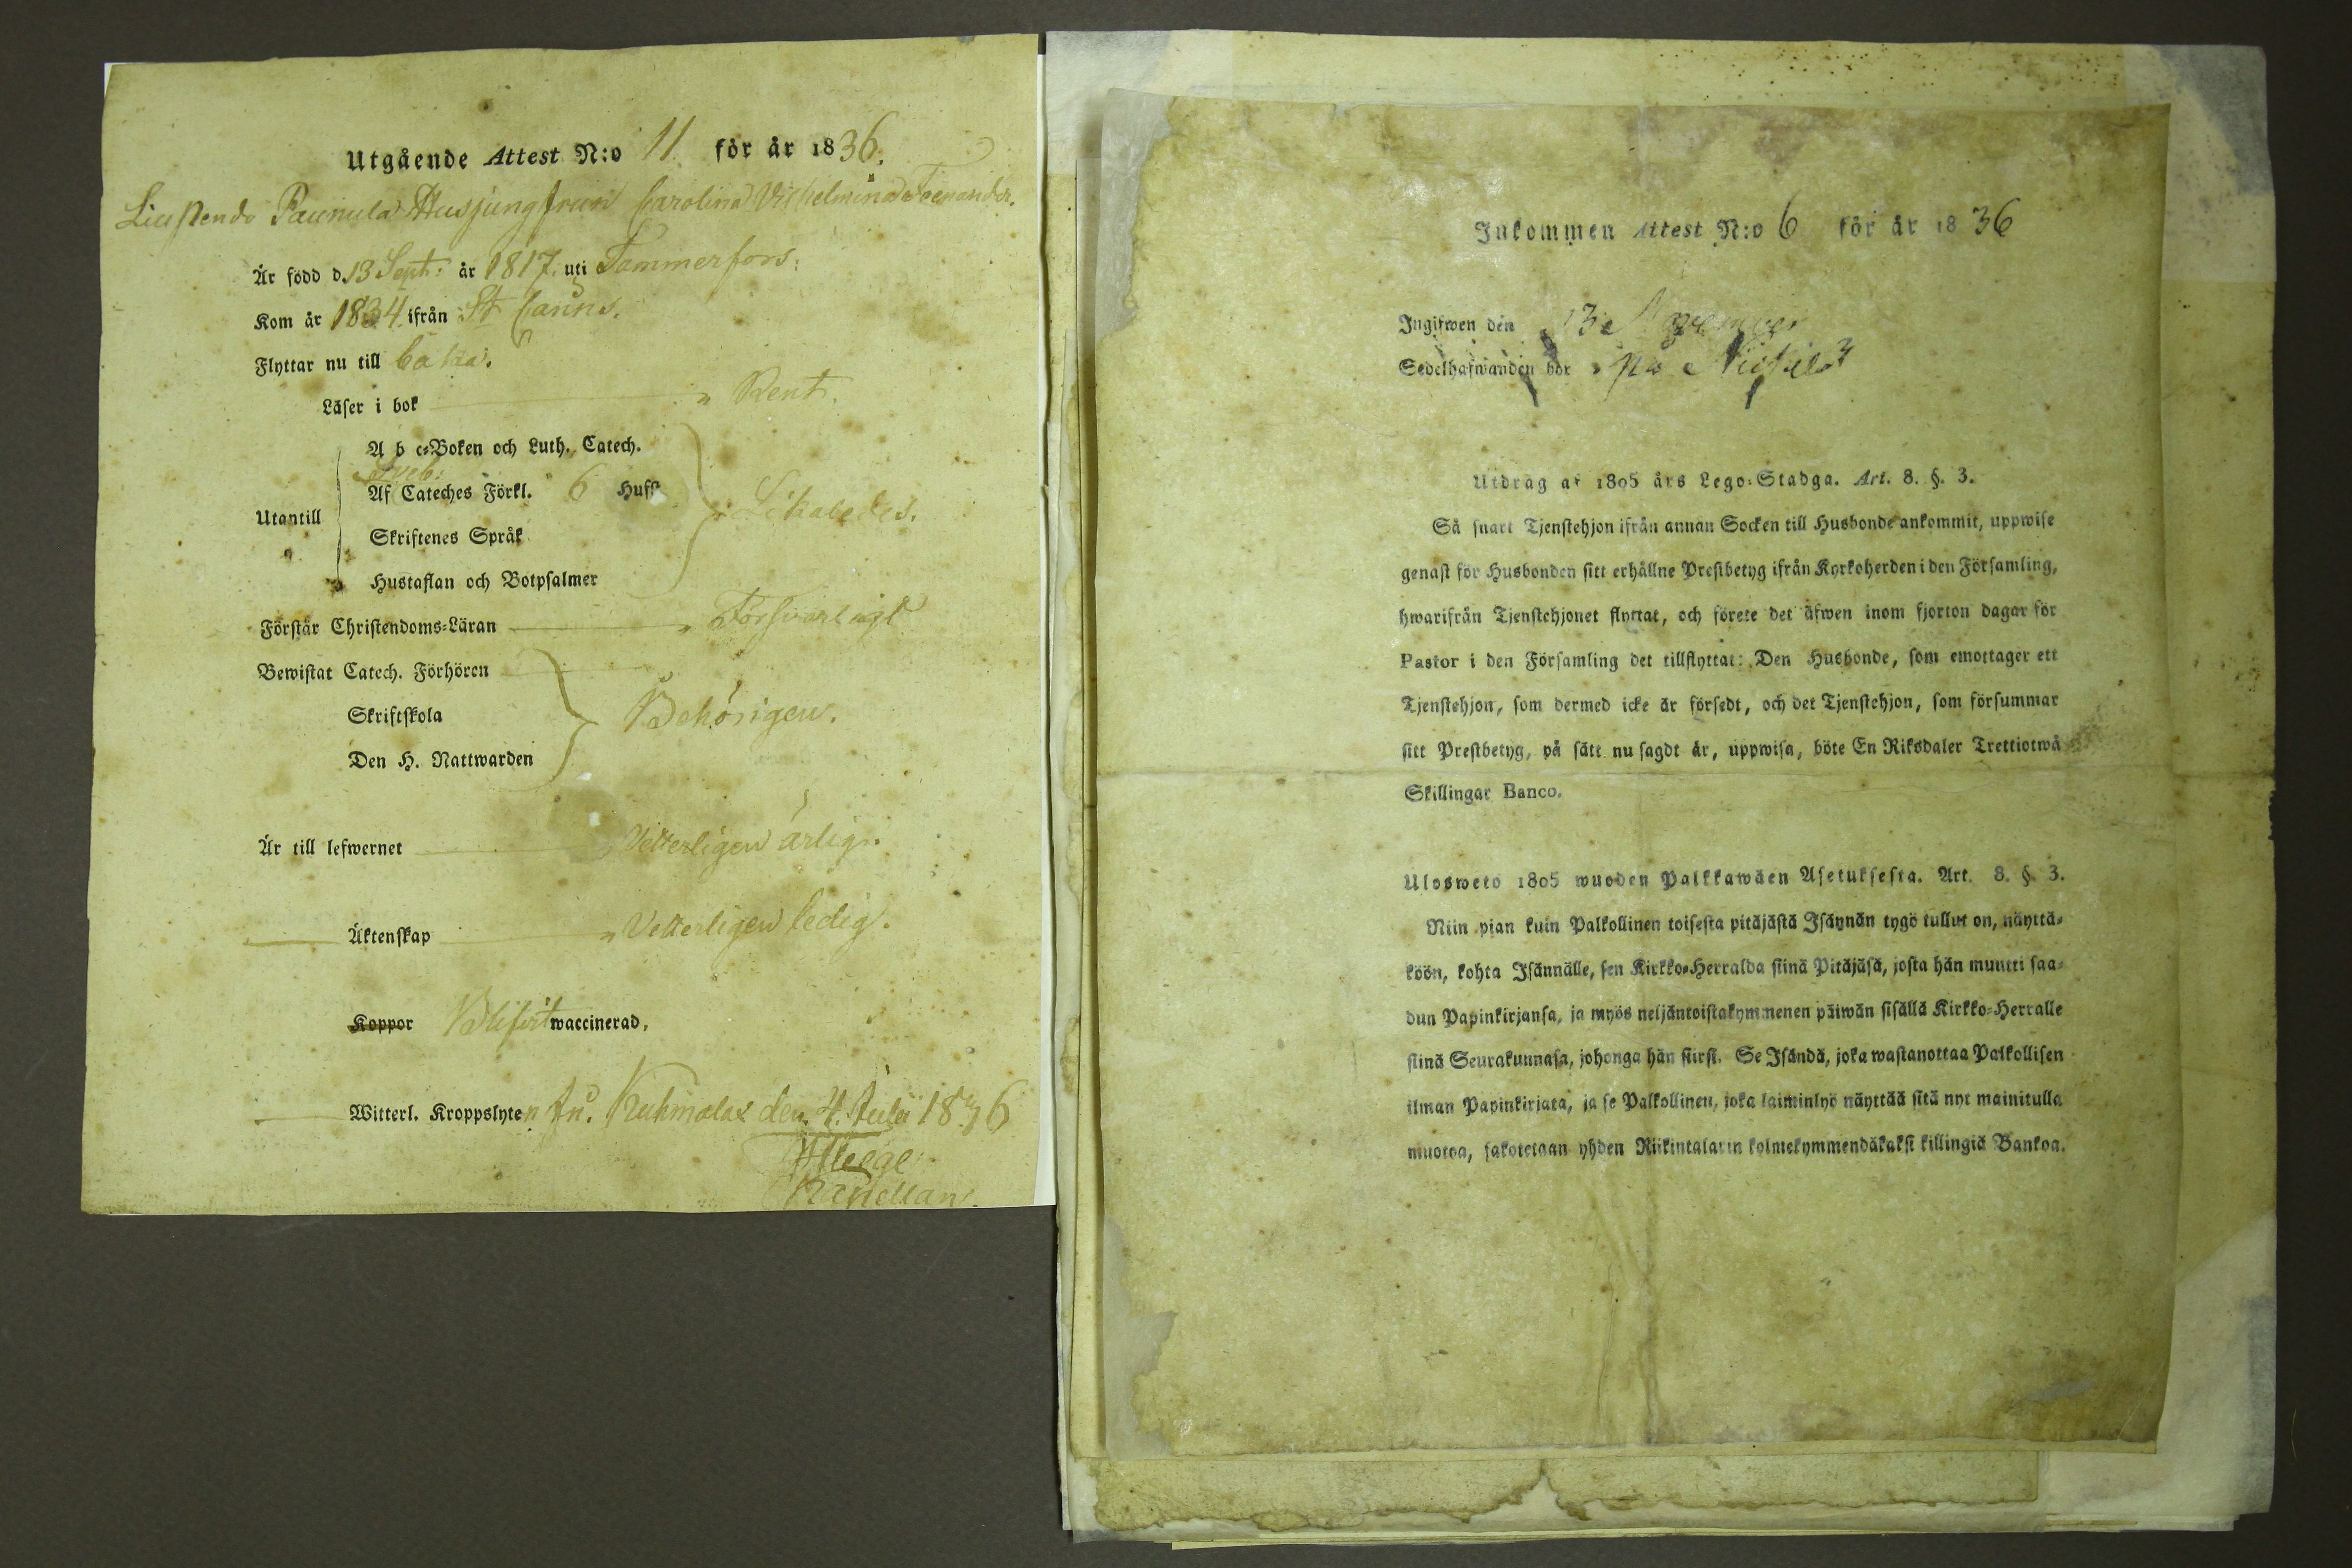 Utgående Attest N:o 11 för år 1836.
Paunula Husjungfrun Carolina Vilhelmina
Är född d. 13 Sept: år 1817. uti Tammerfors.
Kom år 1834. ifrån
Flyttar nu till
Läser i bok Rent.
A b c-Boken och Luth. Catech.
Sveb:
Utantill Af Cateches Förkl. 6 Hufst Likaledes.
Skriftenes Språk
Hustaflan och Botpsalmer
Förstår Christendoms-Läran Försvarligt
Bewistat Catech. Förhören
Skriftskola Behörigen.
Den H. Nattwarden
Är till lefwernet Vetterligen ärlig.
Äktenskap Vetterligen ledig.
Koppor Blifvit waccinerad.
Witterl. Kroppslyten Kuhmalax den 4. Julii 1836
Inkommen Attest N:o 6 för år 1836
Ingifwen den 13 November
Sedelhafwanden bor på
Utdrag af 1805 års Lego-Stadga. Art. 8. §. 3.
Så snart Tjenstehjon ifrån annan Socken till Husbonde ankommit, uppwise
genast för Husbonden sitt erhållne Prestbetyg ifrån Kyrkoherden i den Församling,
hwarifrån Tjenstehjonet flyttat, och förete det äfwen inom fjorton dagar för
Pastor i den Församling det tillflyttat: Den Husbonde, som emottager ett
Tjenstehjon, som dermed icke är försedt, och det Tjenstehjon, som försummar
sitt Prestbetyg, på sätt nu sagdt är, uppwisa, böte En Riksdaler Trettiotwå
Skillingar Banco.
Ulosweto 1805 wuoden Palkkawäen Asetuksesta. Art. 8. §. 3.
Niin pian kuin Palkollinen toisesta pitäjästä Isäynän tygö tullut on, näyttä-
köön, kohta Isännälle, sen Kirkko-Herralda siinä Pitäjäsä, josta hän muutti saa-
dun Papinkirjansa, ja myös neljäntoistakymmenen päiwän sisällä Kirkko-Herralle
siinä Seurakunnasa, johonga hän siirsi. Se Isändä, joka wastanottaa Palkollisen
ilman Papinkirjata, ja se Palkollinen, joka laiminlyö näyttää sitä nyt mainitulla
muotoa, sakotetaan yhden Riikintalarin kolmekymmendäkaksi killingiä Bankoa.